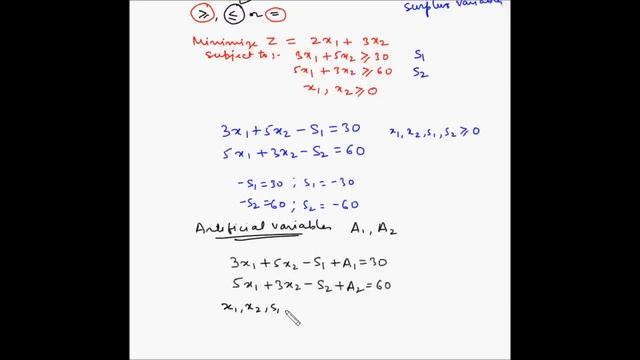 ≥, ≤ or =
surplus variable
Minimize Z = 2x₁ + 3x₂
Subject to:- 3x₁ + 5x₂ ≥ 30 S₁
5x₁ + 3x₂ ≥ 60 S₂
x₁, x₂ ≥ 0
3x₁ + 5x₂ - S₁ = 30 x₁, x₂, s₁, s₂ ≥ 0
5x₁ + 3x₂ - S₂ = 60
-S₁ = 30 ; S₁ = -30
-S₂ = 60 ; S₂ = -60
Artificial variables A₁, A₂
3x₁ + 5x₂ - S₁ + A₁ = 30
5x₁ + 3x₂ - S₂ + A₂ = 60
x₁, x₂, s₁